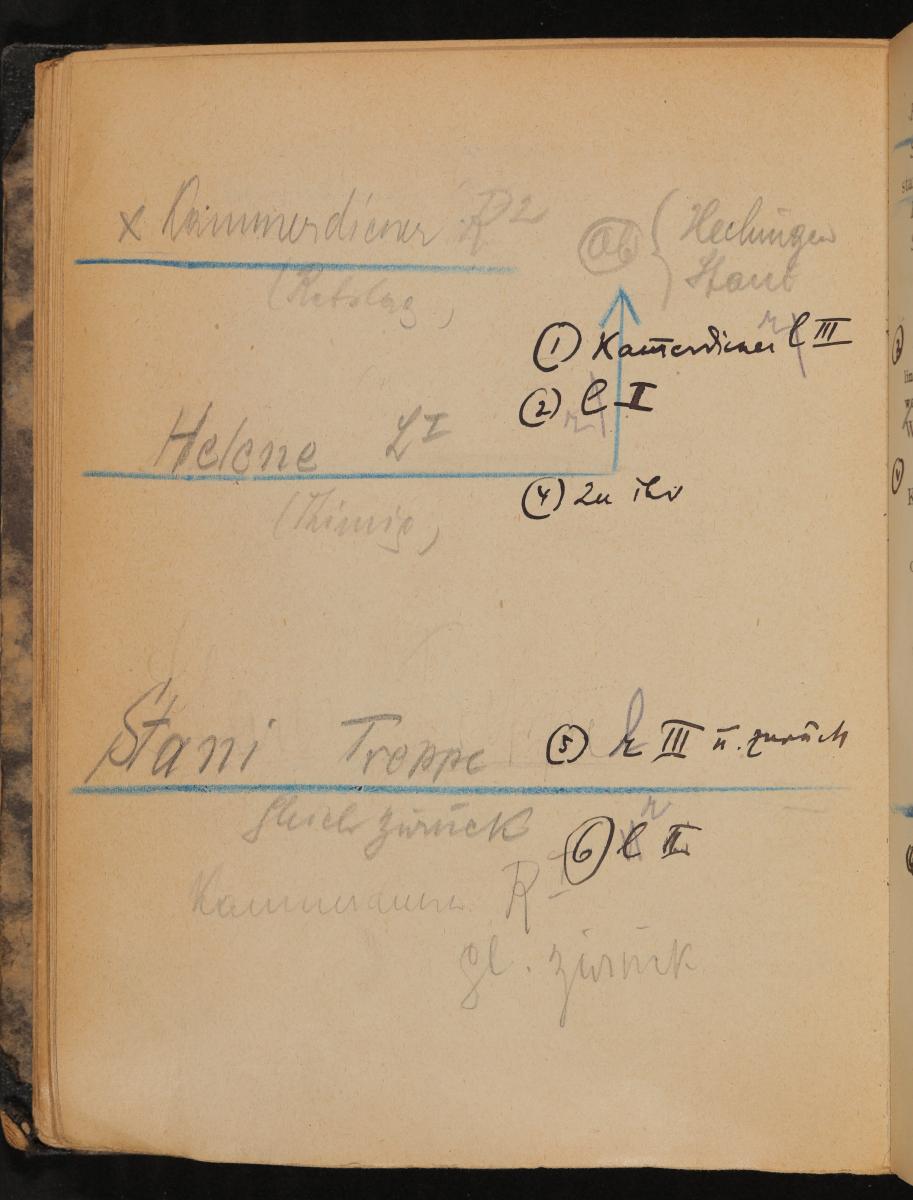 x Kammerdiener R2
ab { Hechingen
Stani
① Kam̅erdiener l III
② l I
Helene L I
(Thimig)
④ Zu ihr
Stani Treppe
⑤ r III u. zurück
Gleich zurück
⑥ l II r
Kammerdiener R I
gl. zurück